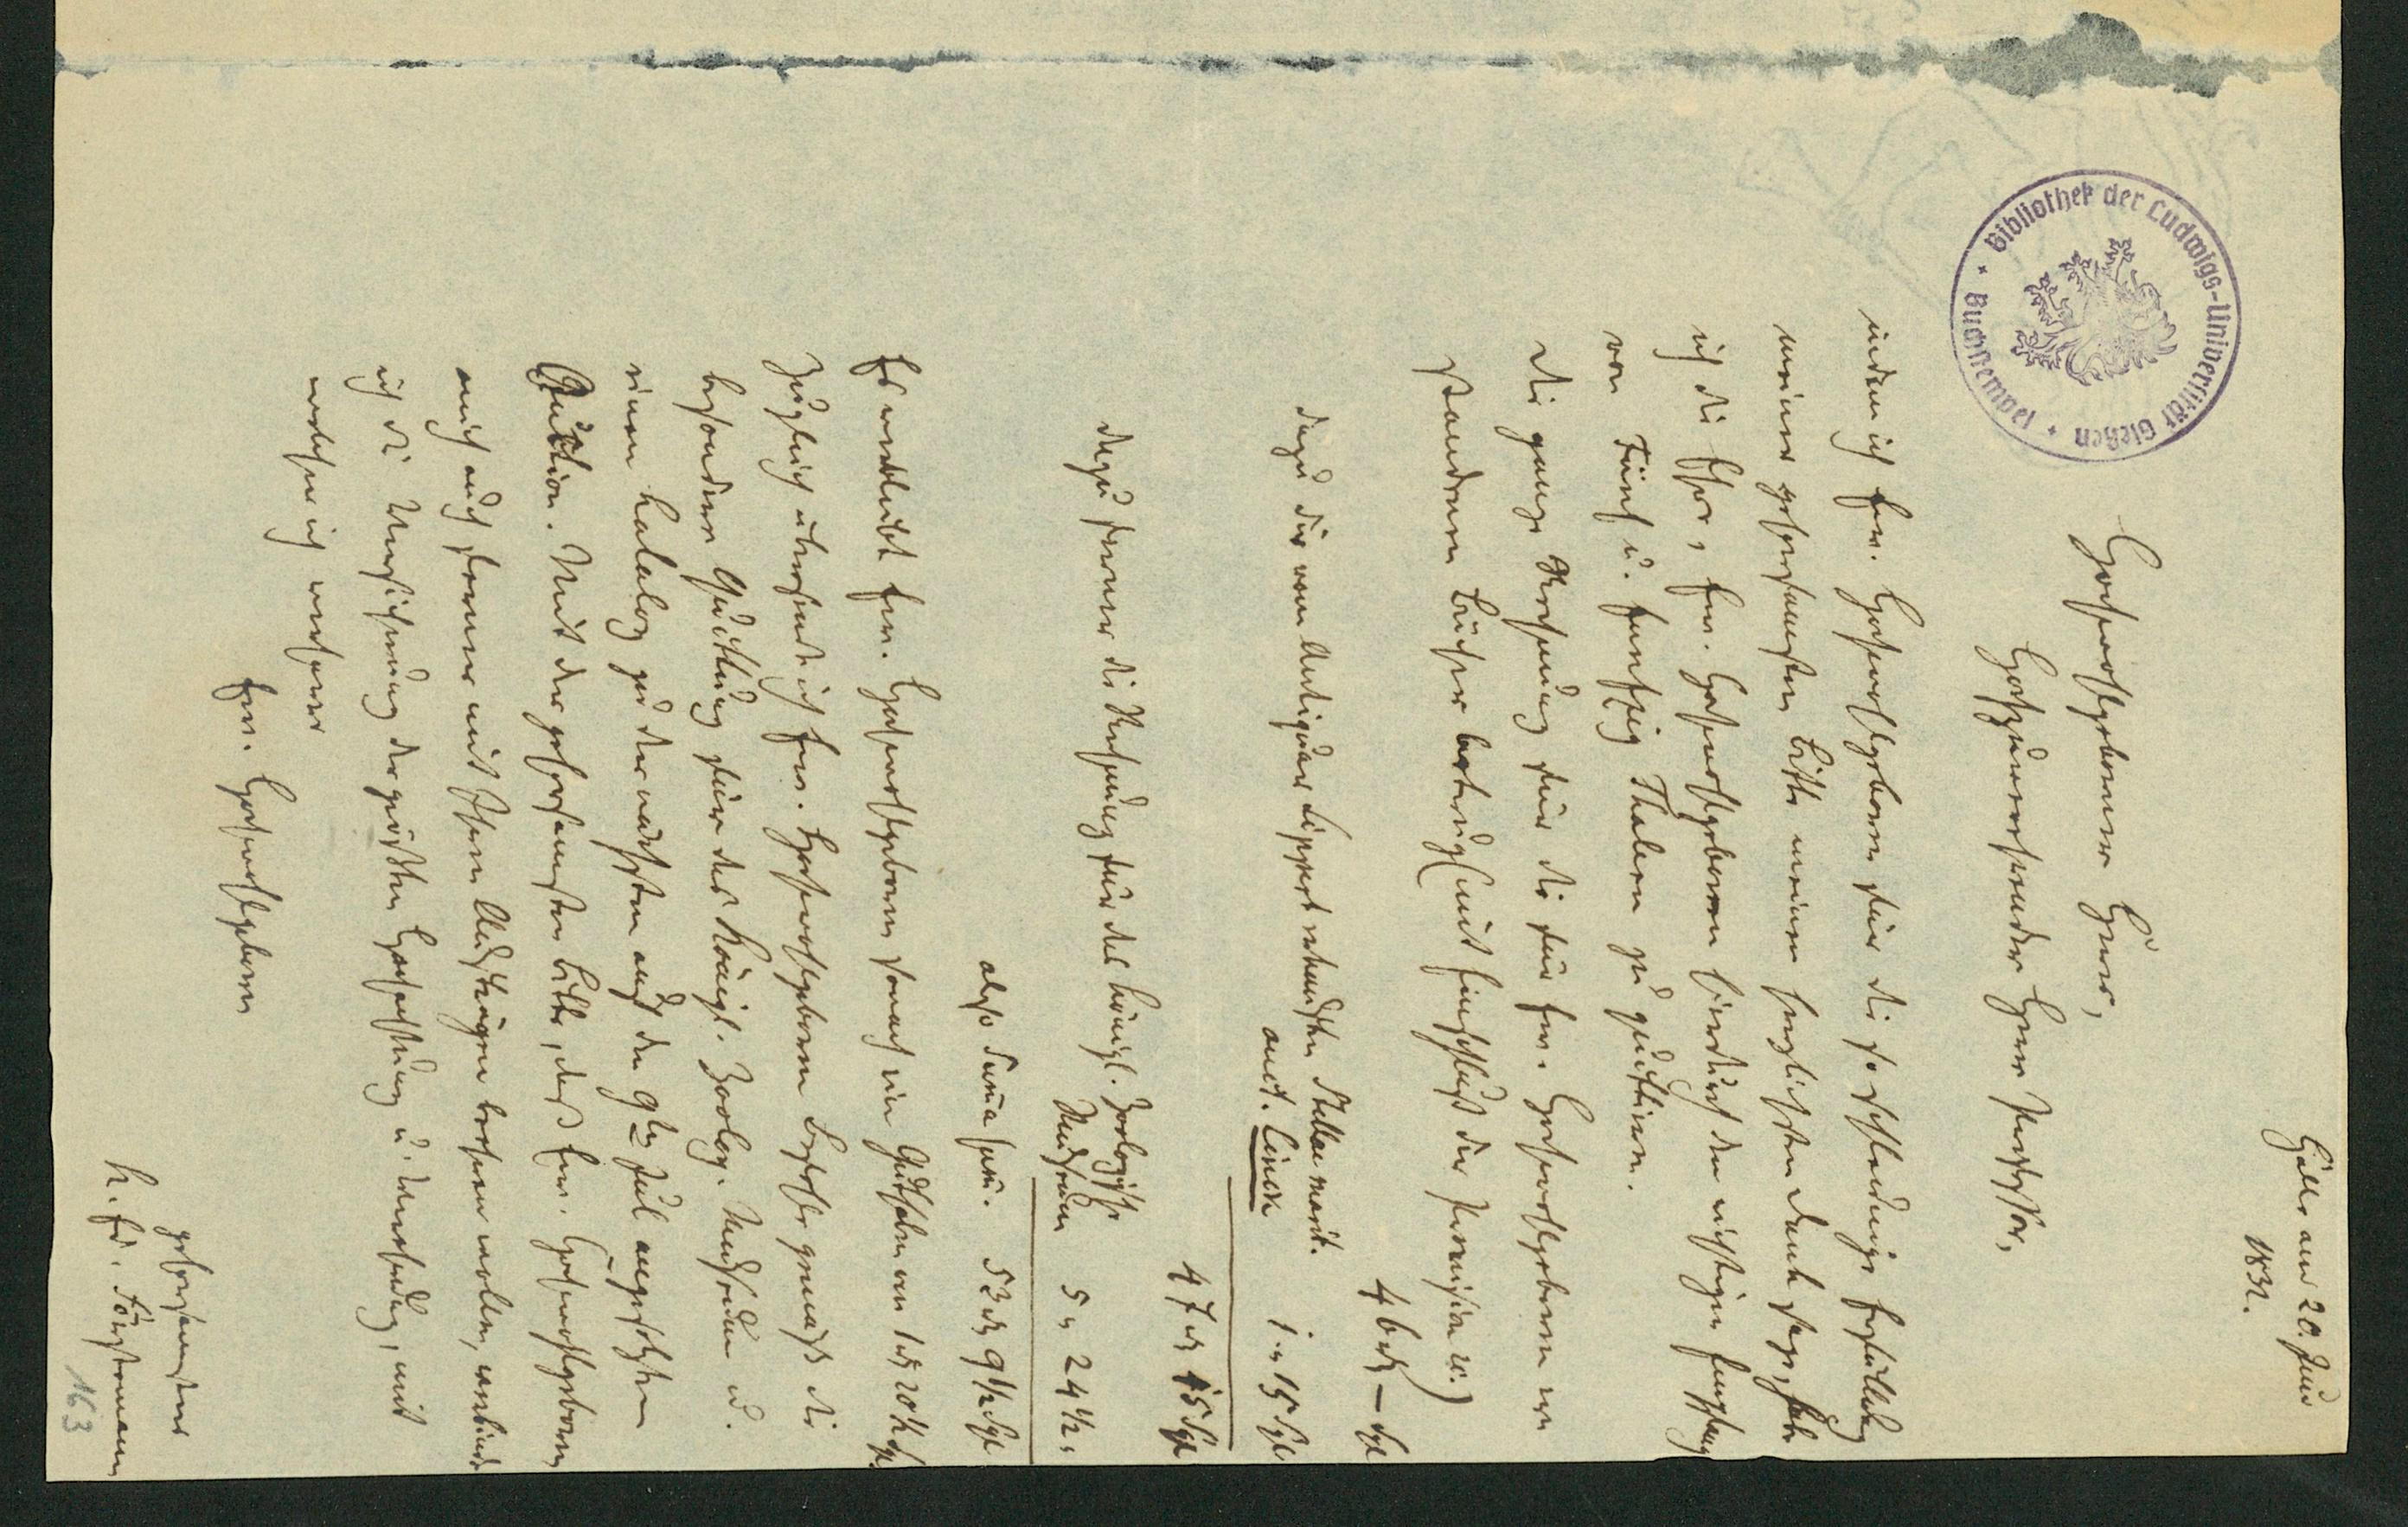 Halle am 20. Juni
1832.
Hochwohlgeborner Herr,
Hochzuverehrender Herr Professor,
indem ich Ew. Hochwohlgeboren für die so schleunige Erfüllung
meiner gehorsamsten Bitte meinen herzlichsten Dank sage, habe
ich die Ehre, Ew. Hochwohlgeboren hierdurch den richtigen Empfang
von Fünf u. funfzig Thalern zu quittiren.
Die ganze Rechnung für die für Ew. Hochwohlgeboren er-
standenen Bücher beträgt (mit Einschluß der Provision ec.)
46 rth — Sgl
dazu die vom Antiquar Lippert erkauften Stellae marit.
auct. Linck
1 " 15 Sgl
47 rth 15 Sgl
dazu ferner die Rechnung für das Königl. Zoologische
Museum
5 " 24½ "
also Suma sum. 53 rth 9½ Sgl
Es verbleibt Ew. Hochwohlgeboren sonach ein Guthaben von 1 rth 20½ Sgl.
Zugleich übersende ich Ew. Hochwohlgeboren Befehle gemäß die
besondere Quittung für das Königl. Zoolog. Museum u.
einen Katalog zu der nächsten auf den 9ten Jul angesetzten
Auktion. Mit der gehorsamsten Bitte, daß Ew. Hochwohlgeboren
mich auch ferner mit Ihren Aufträgen beehren wollen, verbinde
ich die Versicherung der größten Hochachtung u. Verehrung, mit
welcher ich verharre
Ew. Hochwohlgeboren
gehorsamster
K. Ed. Förstemann
163
Bibliothek der Ludwigs-Universität Gießen
Buchstempel